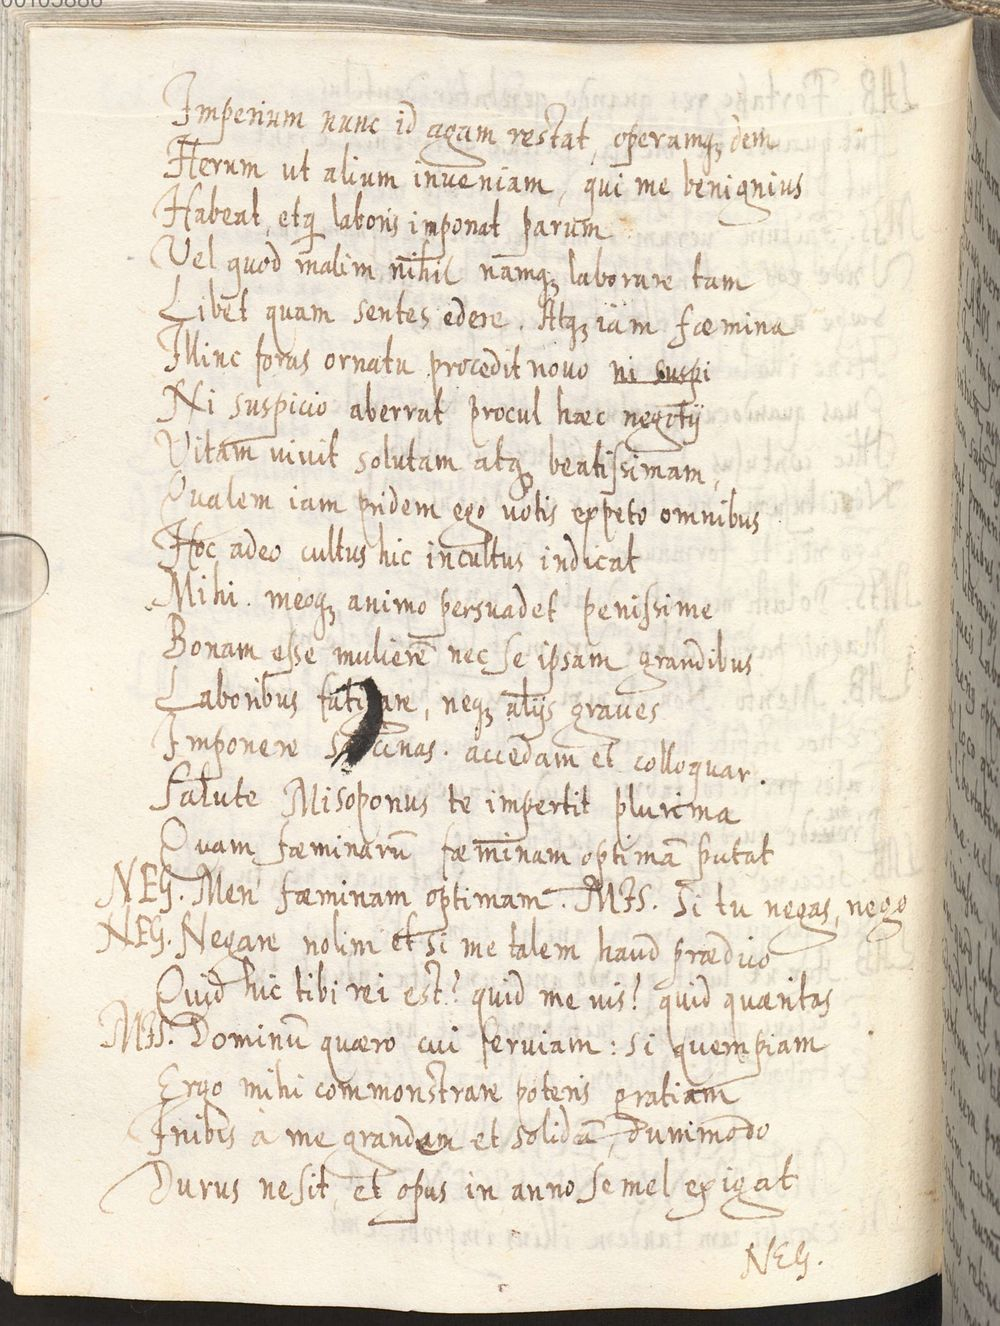 Imperium nunc id agam restat, operamq; dem
Herum ut alium inveniam, qui me benignius
Habeat, etq; laboris imponat parum
Vel quod malim nihil namq; laborare tam
Libet quam sentes edere. Atq; iam fœmina
Illinc foras ornatu procedit novo ni suspi
Ni suspicio aberrat procul hæc negotij
Vitam vivit solutam atq; beatissimam,
Qualem iam pridem ego votis expeto omnibus
Hoc adeo cultus hic incultus indicat
Mihi. meoq; animo persuadet penissime
Bonam esse mulierē nec se ipsam grandibus
Laboribus fatigare, neq; alijs graves
Imponere sarcinas. accedam et colloquar.
Salute Misoponus te impertit plurima
Quam fœminarū fœminam optimā putat
NEG. Men' fœminam optimam. MIS. Si tu negas, nego
NEG. Negare nolim etsi me talem haud prædico
Quid hic tibi rei est? quid me vis? quid quæritas
MIS. Dominū quæro cui serviam: si quempiam
Ergo mihi commonstrare poteris gratiam
Inibis a me grandem et solidā, dummodo
Durus ne sit, et opus in anno semel exigat
NEG.